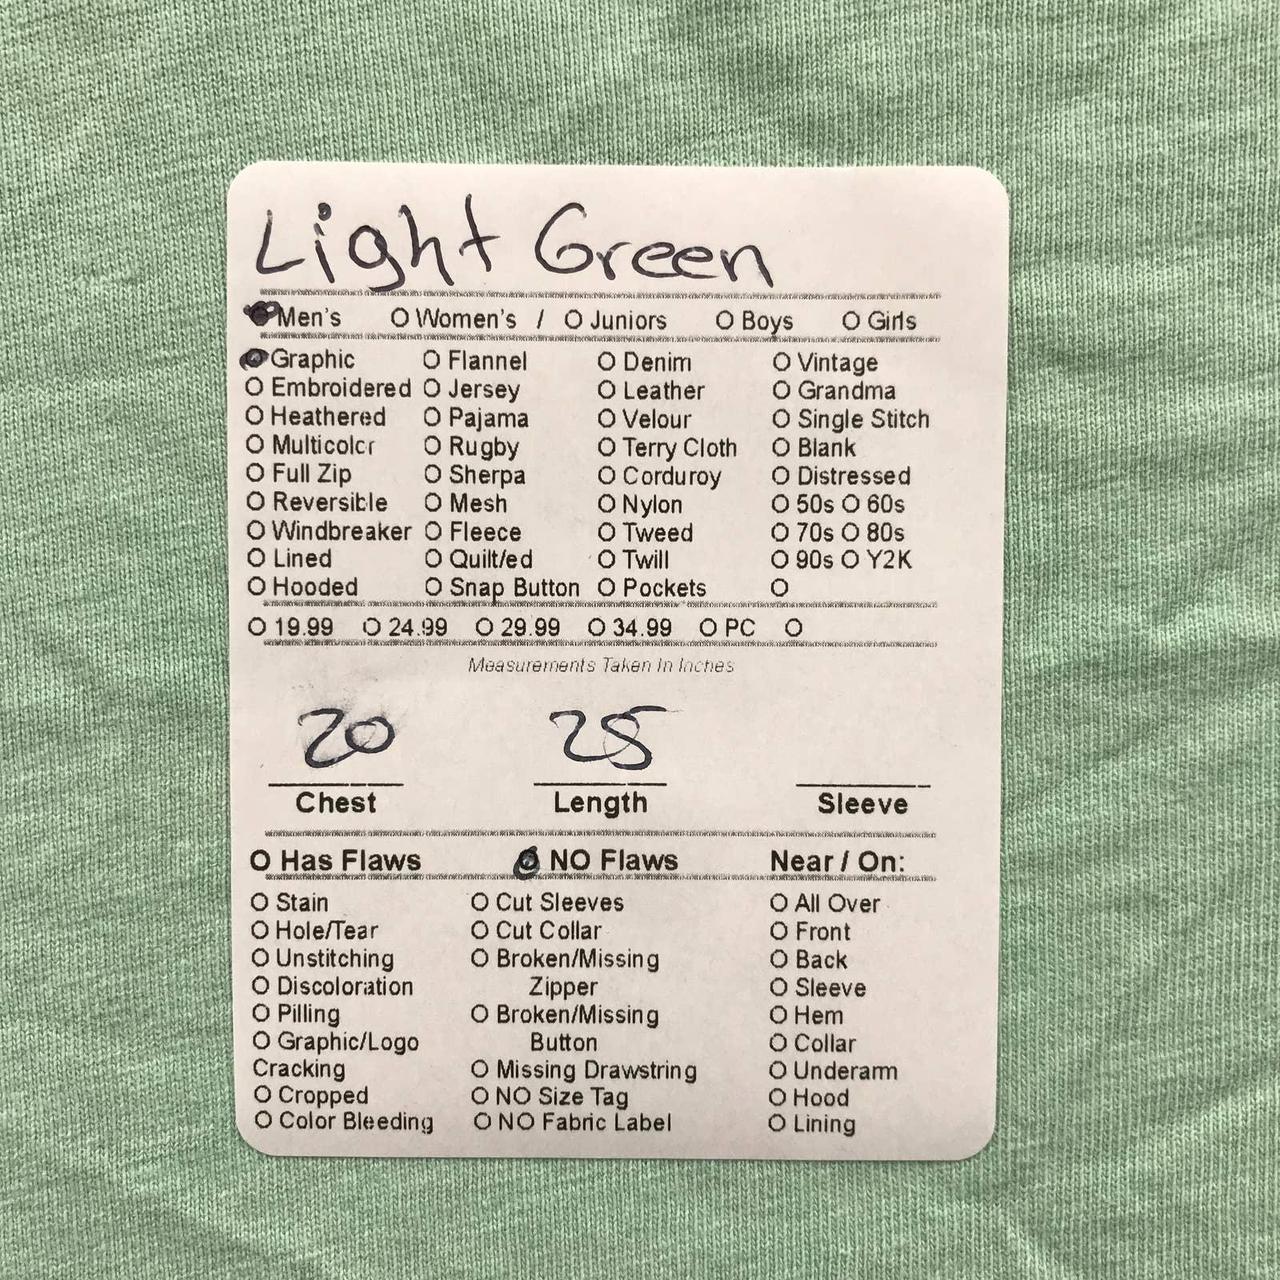 Light Green
Men's O Women's / O Juniors O Boys O Girls
Graphic O Flannel O Denim O Vintage
O Embroidered O Jersey O Leather O Grandma
O Heathered O Pajama O Velour O Single Stitch
O Multicolor O Rugby O Terry Cloth O Blank
O Full Zip O Sherpa O Corduroy O Distressed
O Reversible O Mesh O Nylon O 50s O 60s
O Windbreaker O Fleece O Tweed O 70s O 80s
O Lined O Quilt/ed O Twill O 90s O Y2K
O Hooded O Snap Button O Pockets O
O 19.99 O 24.99 O 29.99 O 34.99 O PC O
Measurements Taken In Inches
20 25
Chest Length Sleeve
O Has Flaws O NO Flaws Near / On:
O Stain O Cut Sleeves O All Over
O Hole/Tear O Cut Collar O Front
O Unstitching O Broken/Missing O Back
O Discoloration Zipper O Sleeve
O Pilling O Broken/Missing O Hem
O Graphic/Logo Button O Collar
Cracking O Missing Drawstring O Underarm
O Cropped O NO Size Tag O Hood
O Color Bleeding O NO Fabric Label O Lining